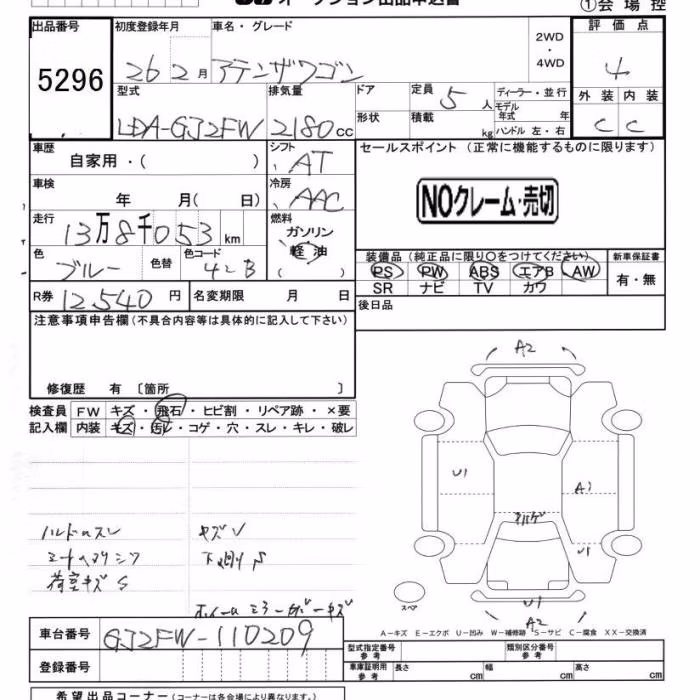 ①会 場 控
出品番号 初度登録年月 車名・グレード 2WD・4WD 評 価 点
5296 26 2 月 アテンザワゴン 4
型式 排気量 ドア 定員 5 人 ディーラー・並行 外 装 内 装
LDA-GJ2FW 2180 cc 形状 積載 kg モデル年式 年 C C
ハンドル 左・右
車歴 シフト セールスポイント (正常に機能するものに限ります)
自家用・( ) AT
車検 冷房 NOクレーム・売切
年 月( 日) AAC
走行 燃料
13万8千053 km ガソリン
軽 油
( )
色 色替 色コード 装備品(純正品に限り○をつけてください) 新車保証書
ブルー 42B PS PW ABS エアB AW 有・無
SR ナビ TV カワ
R券 12,540 円 名変期限 月 日 後日品
注意事項申告欄(不具合内容等は具体的に記入して下さい)
修復歴 有 〔箇所 〕
検査員 FW キズ・飛石・ヒビ割・リペア跡・×要
記入欄 内装 キズ・汚レ・コゲ・穴・スレ・キレ・破レ
A2
U1
A1
U1
ハンドルスレ
荷室キズ S
U1
A2
スペア
A-キズ E-エクボ U-凹み W-補修跡 S-サビ C-腐食 XX-交換済
車台番号 GJ2FW-110209 型式指定番号 類別区分番号
参 考 参 考
登録番号 車庫証明用 長さ cm 幅 cm 高さ cm
参 考
希望出品コーナー(コーナーは各会場により異なります。)